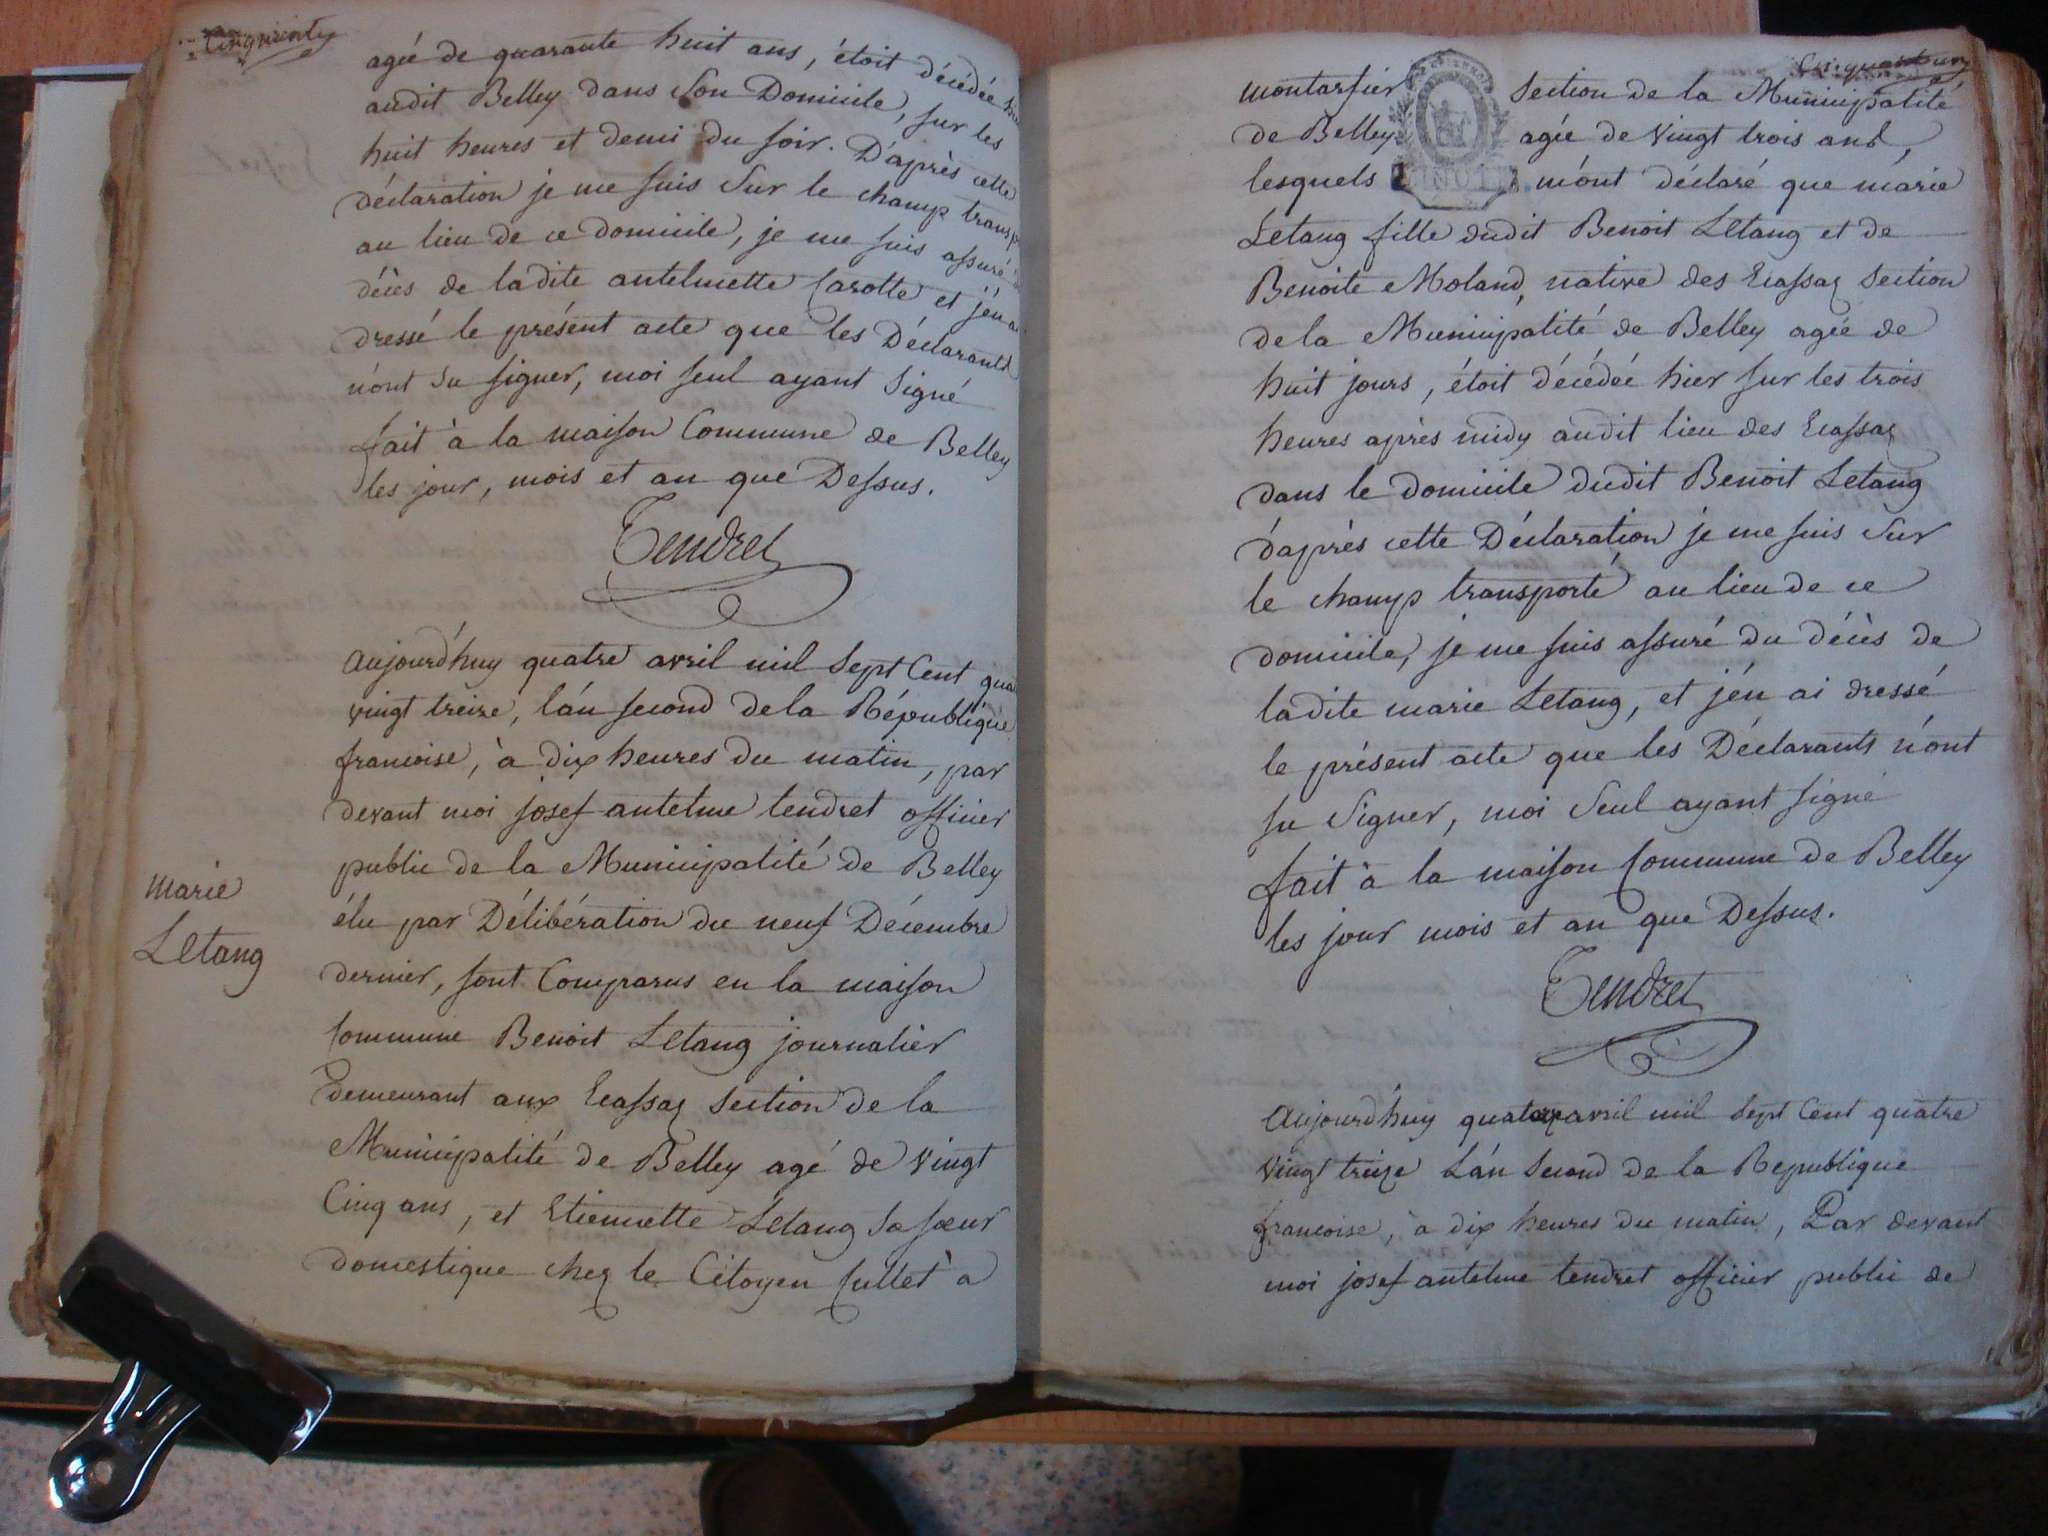 Cinquante
agée de quarante huit ans, étoit décédée
audit Belley dans Son Domicile, sur les
huit heures et demi du soir. D'après cette
déclaration je me suis Sur le champ transp
au lieu de ce domicile, je me suis assuré
décès de ladite antelmette Carotte et j'en a
dressé le présent acte que les Déclarants
n'ont Su signer, moi seul ayant Signé
fait à la maison Commune de Belley
les jour, mois et an que Dessus.
Tendret
Aujourd'huy quatre avril mil Sept Cent qua
vingt treize, l'an second de la République
francoise, à dix heures du matin, par
devant moi josef antelme tendret officier
public de la Municipalité de Belley
élu par Délibération du neuf Décembre
dernier, sont Comparus en la maison
Commune Benoit Letang journalier
demeurant aux Ecassaz Section de la
Municipalité de Belley agé de vingt
Cinq ans, et Etiennette Letang Sa sœur
domestique chez le Citoyen Cullet à
marie
Letang
Cinquante un
montarfier Section de la Municipalité
de Belley agée de vingt trois ans,
lesquels m'ont déclaré que marie
Letang fille dudit Benoit Letang et de
Benoite Moland, native des Ecassaz Section
de la Municipalité de Belley agée de
huit jours, étoit décédée hier sur les trois
heures après midy audit lieu des Ecassaz
dans le domicile dudit Benoit Letang
d'après cette Déclaration je me suis Sur
le champ transporté au lieu de ce
domicile, je me suis assuré du décès de
ladite marie Letang, et j'en ai dressé
le présent acte que les Déclarants n'ont
su Signer, moi Seul ayant signé
fait à la maison Commune de Belley
les jour mois et an que Dessus.
Tendret
Aujourd'huy quatre avril mil Sept Cent quatre
Vingt treize L'an Second de la Republique
francoise, à dix heures du matin, Par devant
moi josef antelme tendret officier public de